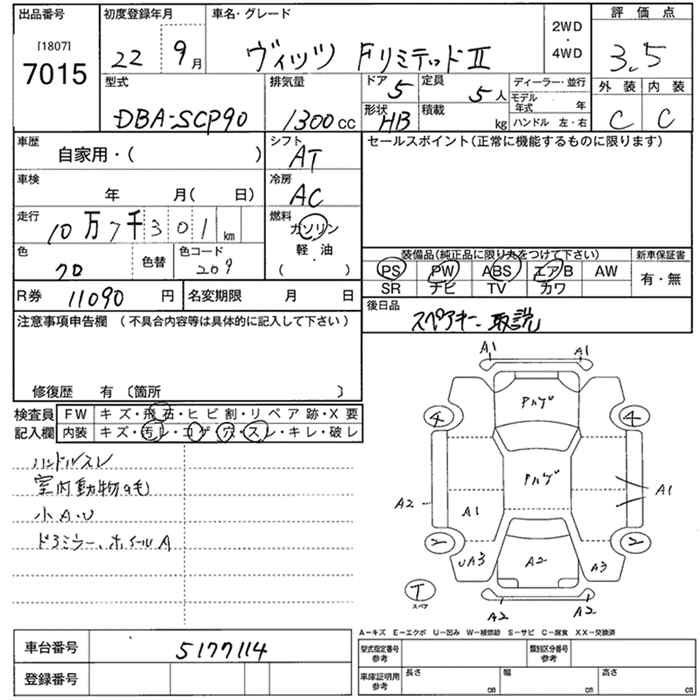 出品番号
[1807]
7015
初度登録年月
22 9月
車名・グレード
ヴィッツ FリミテッドⅡ
2WD
・
4WD
評価点
3.5
外装 内装
C C
型式
DBA-SCP90
排気量
1300cc
ドア 5
定員 5人
形状 HB
積載 kg
ディーラー・並行
モデル年式 年
ハンドル 左・右
車歴
自家用・( )
シフト
AT
車検
年 月( 日)
冷房
AC
走行
10万7千301km
燃料
ガソリン
軽・油
( )
色
色替
色コード
209
R券 11090円
名変期限 月 日
セールスポイント(正常に機能するものに限ります)
装備品(純正品に限り丸をつけて下さい)
PS PW ABS エアB AW
SR ナビ TV カワ
新車保証書
有・無
後日品
スペアキー、取説
注意事項申告欄 (不具合内容等は具体的に記入して下さい)
修復歴 有〔箇所 〕
検査員
記入欄
FW キズ・飛石・ヒビ割・リペア跡・X要
内装 キズ・汚レ・コゲ・穴・スレ・キレ・破レ
ハンドルスレ
室内動物の毛
小A・U
ドアミラー、ホイールA
A1 A1
アルゲ
4 4
アルゲ
A2 A1 A1
2 2
UA3 A2 A3
T
スペア
A2 A2
A-キズ E-エクボ U-凹み W-補修跡 S-サビ C-腐食 XX-交換済
車台番号 5177114
登録番号
型式指定番号
参考
類別区分番号
参考
車庫証明用
参考
長さ cm
幅 cm
高さ cm